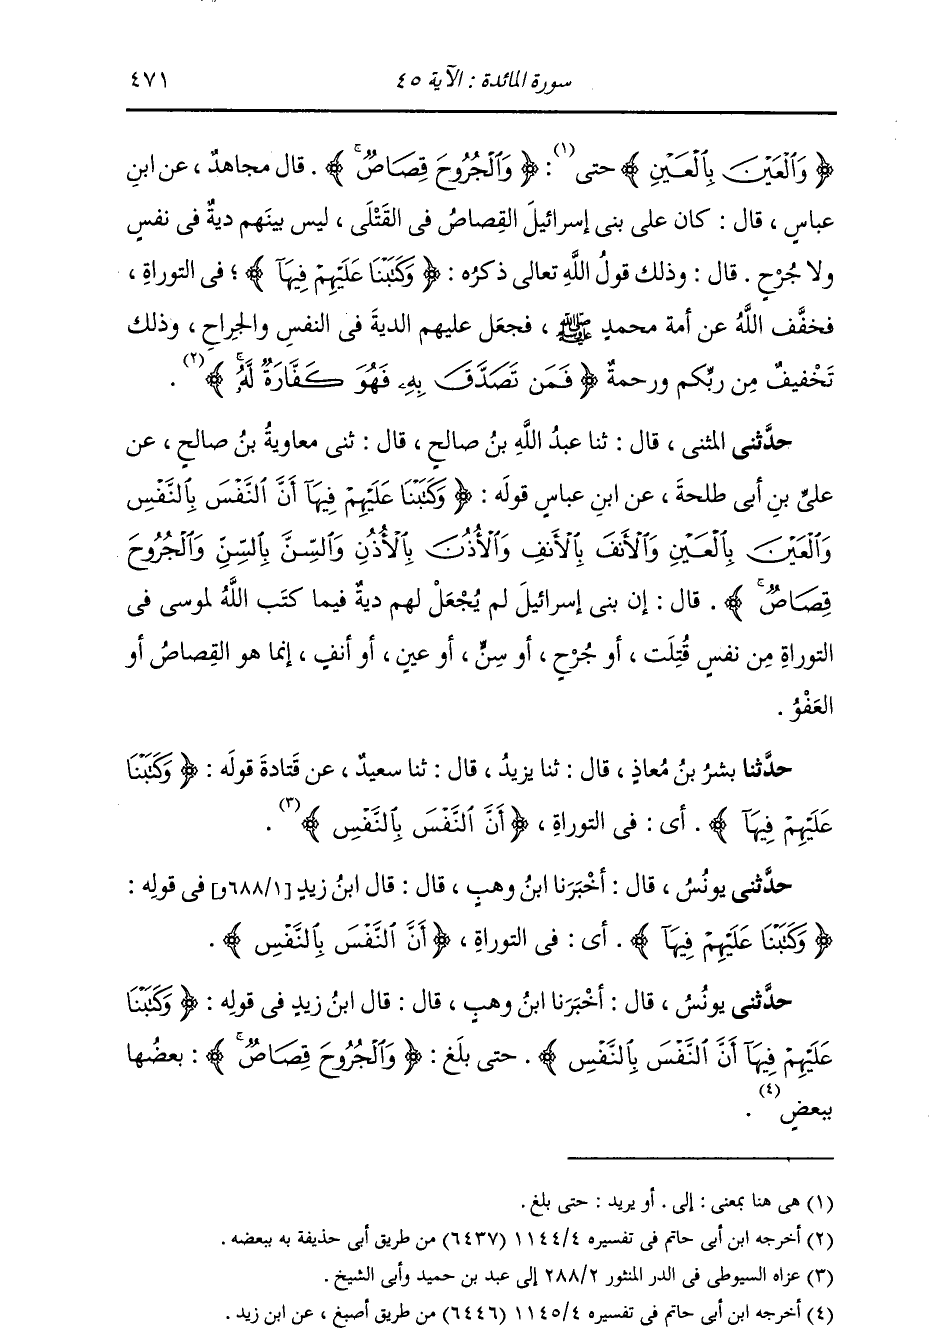 سورة المائدة : الآية ٤٥ ٤٧١
﴿ وَٱلْعَيْنَ بِٱلْعَيْنِ ﴾ حتى(١) : ﴿ وَٱلْجُرُوحَ قِصَاصٌ ۚ ﴾ . قال مجاهدٌ ، عن ابنِ
عباسٍ ، قال : كان على بنى إسرائيلَ القِصاصُ فى القَتْلَى ، ليس بينَهم ديةٌ فى نفسٍ
ولا جُرْحٍ . قال : وذلك قولُ اللَّهِ تعالى ذكرُه : ﴿ وَكَتَبْنَا عَلَيْهِمْ فِيهَآ ﴾ ؛ فى التوراةِ ،
فخفَّف اللَّهُ عن أمة محمدٍ ﷺ ، فجعَل عليهم الديةَ فى النفسِ والجِراحِ ، وذلك
تَخْفيفٌ مِن ربِّكم ورحمةٌ ﴿ فَمَن تَصَدَّقَ بِهِۦ فَهُوَ كَفَّارَةٌ لَّهُۥ ۚ ﴾(٢) .
حدَّثنى المثنى ، قال : ثنا عبدُ اللَّهِ بنُ صالحٍ ، قال : ثنى معاويةُ بنُ صالحٍ ، عن
علىِّ بنِ أبى طلحةَ ، عن ابنِ عباسٍ قولَه : ﴿ وَكَتَبْنَا عَلَيْهِمْ فِيهَآ أَنَّ ٱلنَّفْسَ بِٱلنَّفْسِ
وَٱلْعَيْنَ بِٱلْعَيْنِ وَٱلْأَنفَ بِٱلْأَنفِ وَٱلْأُذُنَ بِٱلْأُذُنِ وَٱلسِّنَّ بِٱلسِّنِّ وَٱلْجُرُوحَ
قِصَاصٌ ۚ ﴾ . قال : إن بنى إسرائيلَ لم يُجْعَلْ لهم ديةٌ فيما كتَب اللَّهُ لموسى فى
التوراةِ مِن نفسٍ قُتِلَت ، أو جُرْحٍ ، أو سِنٍّ ، أو عينٍ ، أو أنفٍ ، إنما هو القِصاصُ أو
العَفْوُ .
حدَّثنا بشرُ بنُ مُعاذٍ ، قال : ثنا يزيدُ ، قال : ثنا سعيدٌ ، عن قَتادةَ قولَه : ﴿ وَكَتَبْنَا
عَلَيْهِمْ فِيهَآ ﴾ . أى : فى التوراةِ ، ﴿ أَنَّ ٱلنَّفْسَ بِٱلنَّفْسِ ﴾(٣) .
حدَّثنى يونُسُ ، قال : أخْبَرَنا ابنُ وهبٍ ، قال : قال ابنُ زيدٍ [٦٨٨/١و] فى قولِه :
﴿ وَكَتَبْنَا عَلَيْهِمْ فِيهَآ ﴾ . أى : فى التوراةِ ، ﴿ أَنَّ ٱلنَّفْسَ بِٱلنَّفْسِ ﴾ .
حدَّثنى يونُسُ ، قال : أخْبَرَنا ابنُ وهبٍ ، قال : قال ابنُ زيدٍ فى قولِه : ﴿ وَكَتَبْنَا
عَلَيْهِمْ فِيهَآ أَنَّ ٱلنَّفْسَ بِٱلنَّفْسِ ﴾ . حتى بلَغ : ﴿ وَٱلْجُرُوحَ قِصَاصٌ ۚ ﴾ : بعضُها
ببعضٍ(٤) .
(١) هى هنا بمعنى : إلى . أو يريد : حتى بلغ .
(٢) أخرجه ابن أبى حاتم فى تفسيره ١١٤٤/٤ (٦٤٣٧) من طريق أبى حذيفة به ببعضه .
(٣) عزاه السيوطى فى الدر المنثور ٢٨٨/٢ إلى عبد بن حميد وأبى الشيخ .
(٤) أخرجه ابن أبى حاتم فى تفسيره ١١٤٥/٤ (٦٤٤٦) من طريق أصبغ ، عن ابن زيد .